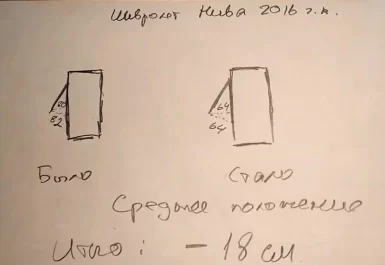 Шивролет Нива 2016 г.в.
82
64
64
Было
Стало
Среднее положение
Итого: - 18 см